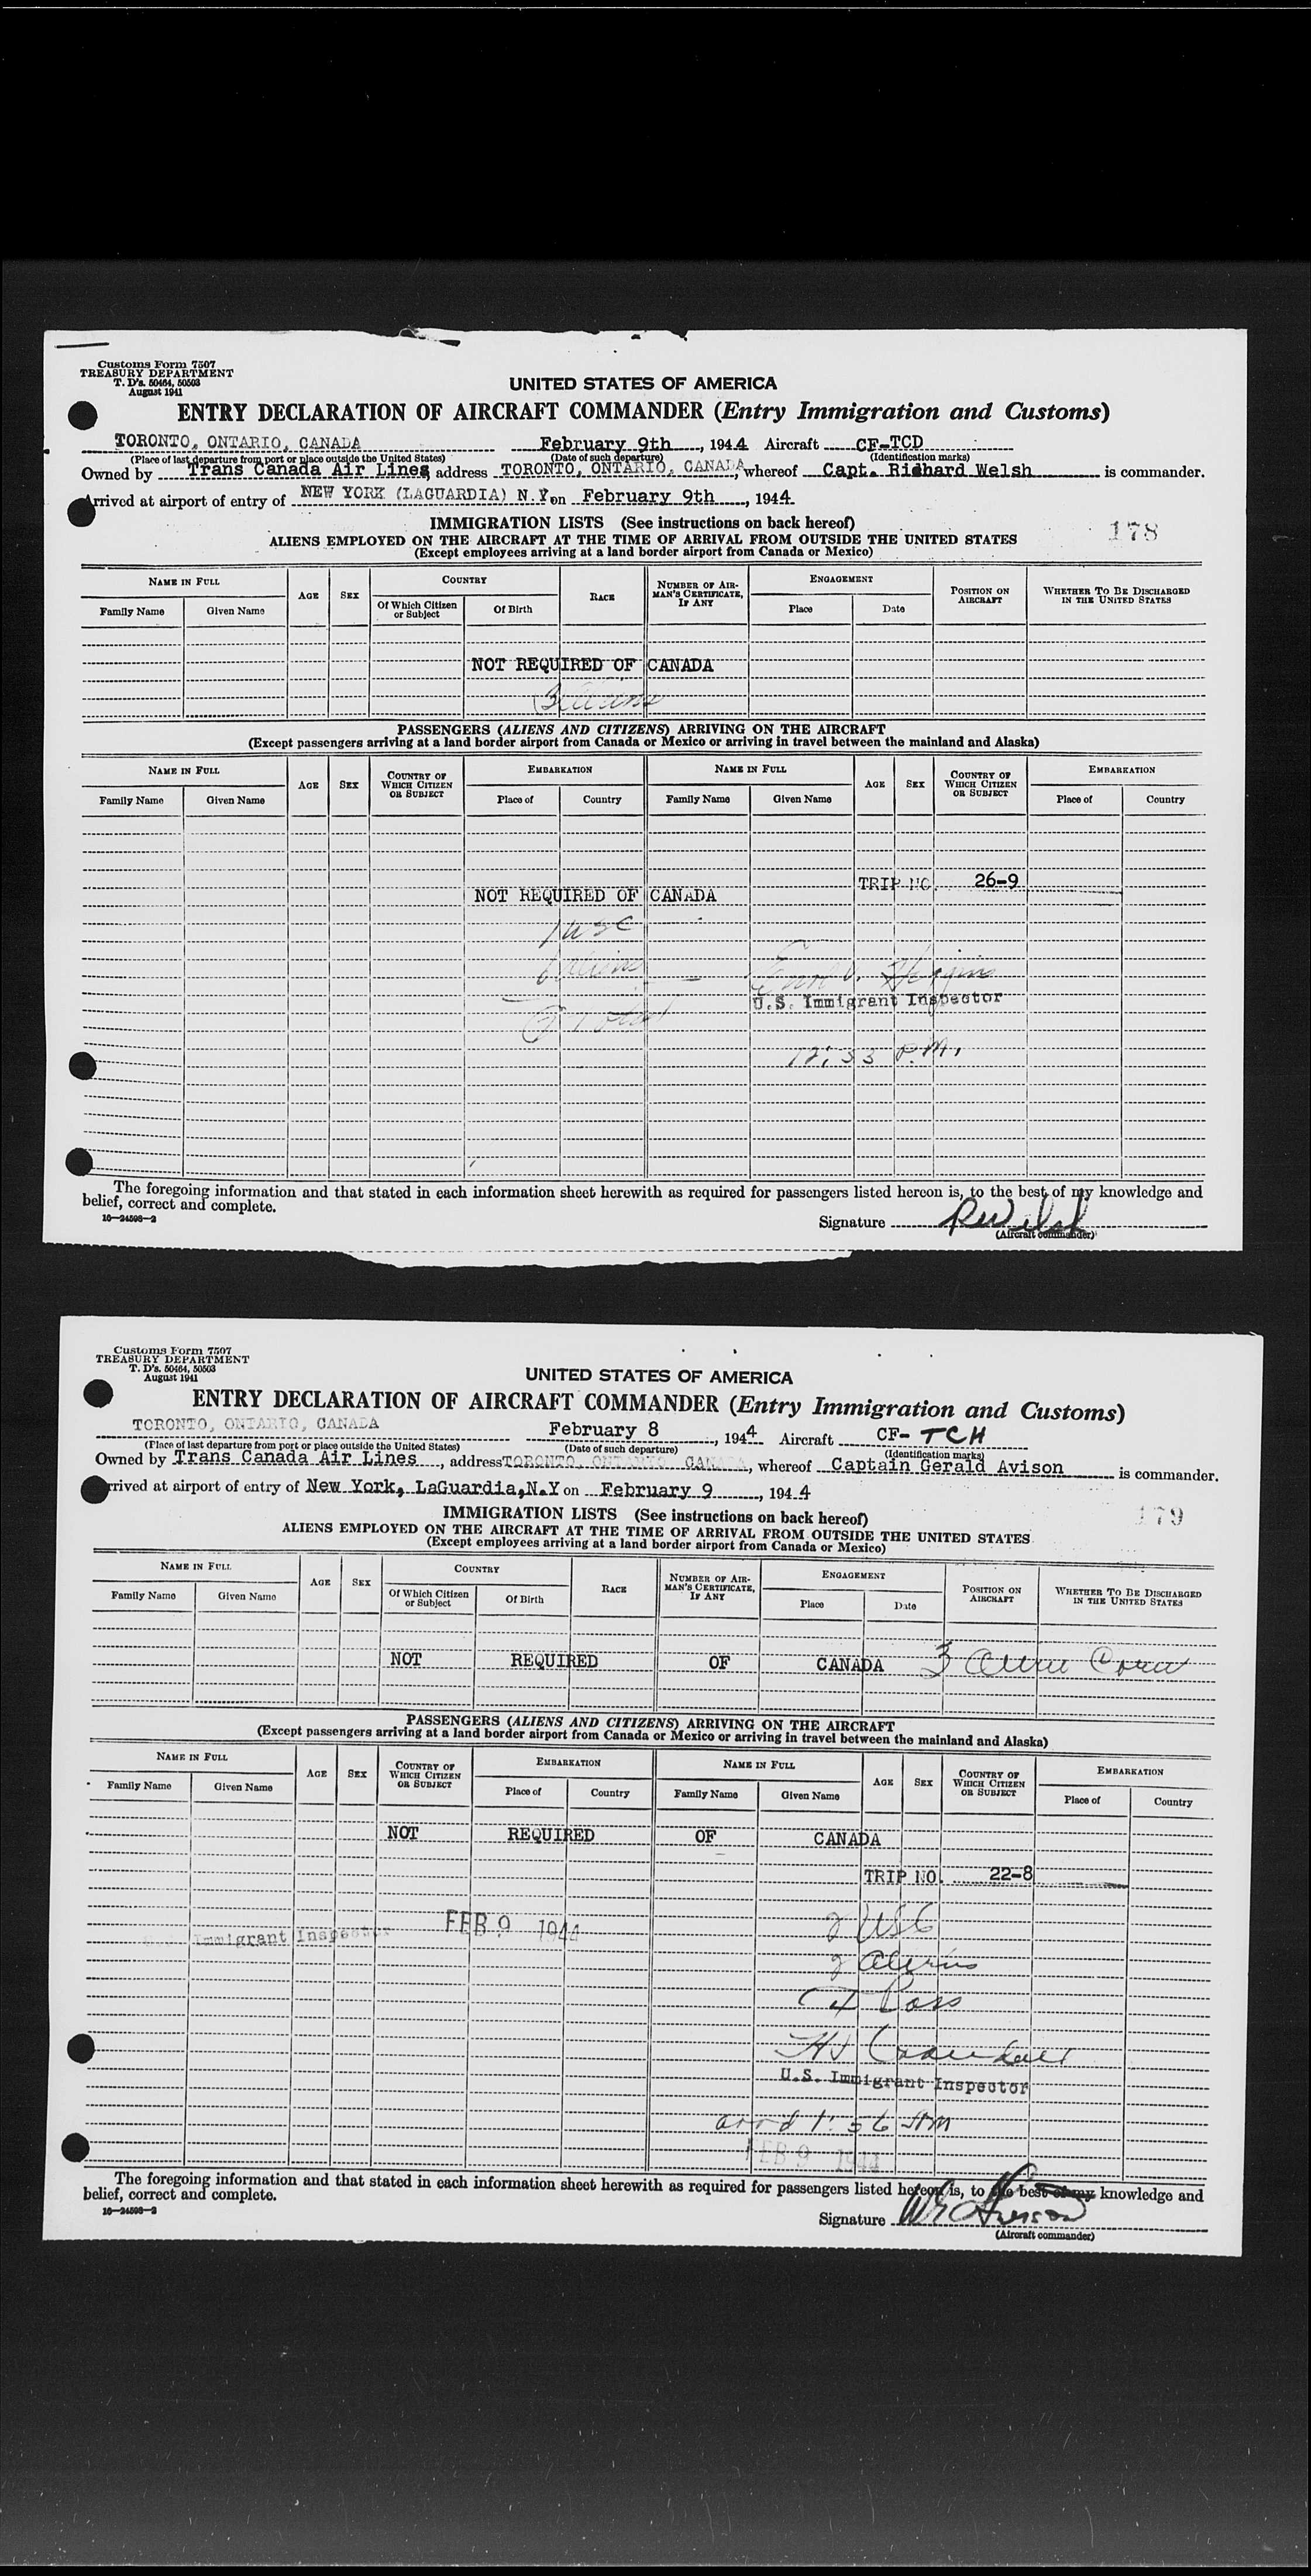 Customs Form 7507
TREASURY DEPARTMENT
T. D's. 50464, 50503
August 1941
UNITED STATES OF AMERICA
ENTRY DECLARATION OF AIRCRAFT COMMANDER (Entry Immigration and Customs)
TORONTO, ONTARIO, CANADA February 9th, 1944 Aircraft CF-TCD
(Place of last departure from port or place outside the United States) (Date of such departure) (Identification marks)
Owned by Trans Canada Air Lines, address TORONTO, ONTARIO, CANADA, whereof Capt. Richard Welsh is commander.
Arrived at airport of entry of NEW YORK (LAGUARDIA) N.Y. on February 9th, 1944
IMMIGRATION LISTS (See instructions on back hereof)
178
ALIENS EMPLOYED ON THE AIRCRAFT AT THE TIME OF ARRIVAL FROM OUTSIDE THE UNITED STATES
(Except employees arriving at a land border airport from Canada or Mexico)
NAME IN FULL AGE SEX COUNTRY RACE NUMBER OF AIRMAN'S CERTIFICATE, IF ANY ENGAGEMENT POSITION ON AIRCRAFT WHETHER TO BE DISCHARGED IN THE UNITED STATES
Family Name Given Name Of Which Citizen or Subject Of Birth Place Date
NOT REQUIRED OF CANADA
PASSENGERS (ALIENS AND CITIZENS) ARRIVING ON THE AIRCRAFT
(Except passengers arriving at a land border airport from Canada or Mexico or arriving in travel between the mainland and Alaska)
NAME IN FULL AGE SEX COUNTRY OF WHICH CITIZEN OR SUBJECT EMBARKATION NAME IN FULL AGE SEX COUNTRY OF WHICH CITIZEN OR SUBJECT EMBARKATION
Family Name Given Name Place of Country Family Name Given Name Place of Country
TRIP NO. 26-9
NOT REQUIRED OF CANADA
U.S. Immigrant Inspector
12:33 P.M.
The foregoing information and that stated in each information sheet herewith as required for passengers listed hereon is, to the best of my knowledge and
belief, correct and complete.
16-24598-2
Signature RWelsh
(Aircraft commander)
Customs Form 7507
TREASURY DEPARTMENT
T. D's. 50464, 50503
August 1941
UNITED STATES OF AMERICA
ENTRY DECLARATION OF AIRCRAFT COMMANDER (Entry Immigration and Customs)
TORONTO, ONTARIO, CANADA February 8, 1944 Aircraft CF-TCH
(Place of last departure from port or place outside the United States) (Date of such departure) (Identification marks)
Owned by Trans Canada Air Lines, address TORONTO, ONTARIO, CANADA, whereof Captain Gerald Avison is commander.
Arrived at airport of entry of New York, LaGuardia, N.Y on February 9, 1944
IMMIGRATION LISTS (See instructions on back hereof)
179
ALIENS EMPLOYED ON THE AIRCRAFT AT THE TIME OF ARRIVAL FROM OUTSIDE THE UNITED STATES
(Except employees arriving at a land border airport from Canada or Mexico)
NAME IN FULL AGE SEX COUNTRY RACE NUMBER OF AIRMAN'S CERTIFICATE, IF ANY ENGAGEMENT POSITION ON AIRCRAFT WHETHER TO BE DISCHARGED IN THE UNITED STATES
Family Name Given Name Of Which Citizen or Subject Of Birth Place Date
NOT REQUIRED OF CANADA 3 Alien Crew
PASSENGERS (ALIENS AND CITIZENS) ARRIVING ON THE AIRCRAFT
(Except passengers arriving at a land border airport from Canada or Mexico or arriving in travel between the mainland and Alaska)
NAME IN FULL AGE SEX COUNTRY OF WHICH CITIZEN OR SUBJECT EMBARKATION NAME IN FULL AGE SEX COUNTRY OF WHICH CITIZEN OR SUBJECT EMBARKATION
Family Name Given Name Place of Country Family Name Given Name Place of Country
NOT REQUIRED OF CANADA
TRIP NO. 22-8
Immigrant Inspector FEB 9 1944
2 USC
2 Aliens
4 Pass
U.S. Immigrant Inspector
arrd 1:56 AM
FEB 9 1944
The foregoing information and that stated in each information sheet herewith as required for passengers listed hereon is, to the best of my knowledge and
belief, correct and complete.
16-24598-2
Signature
(Aircraft commander)